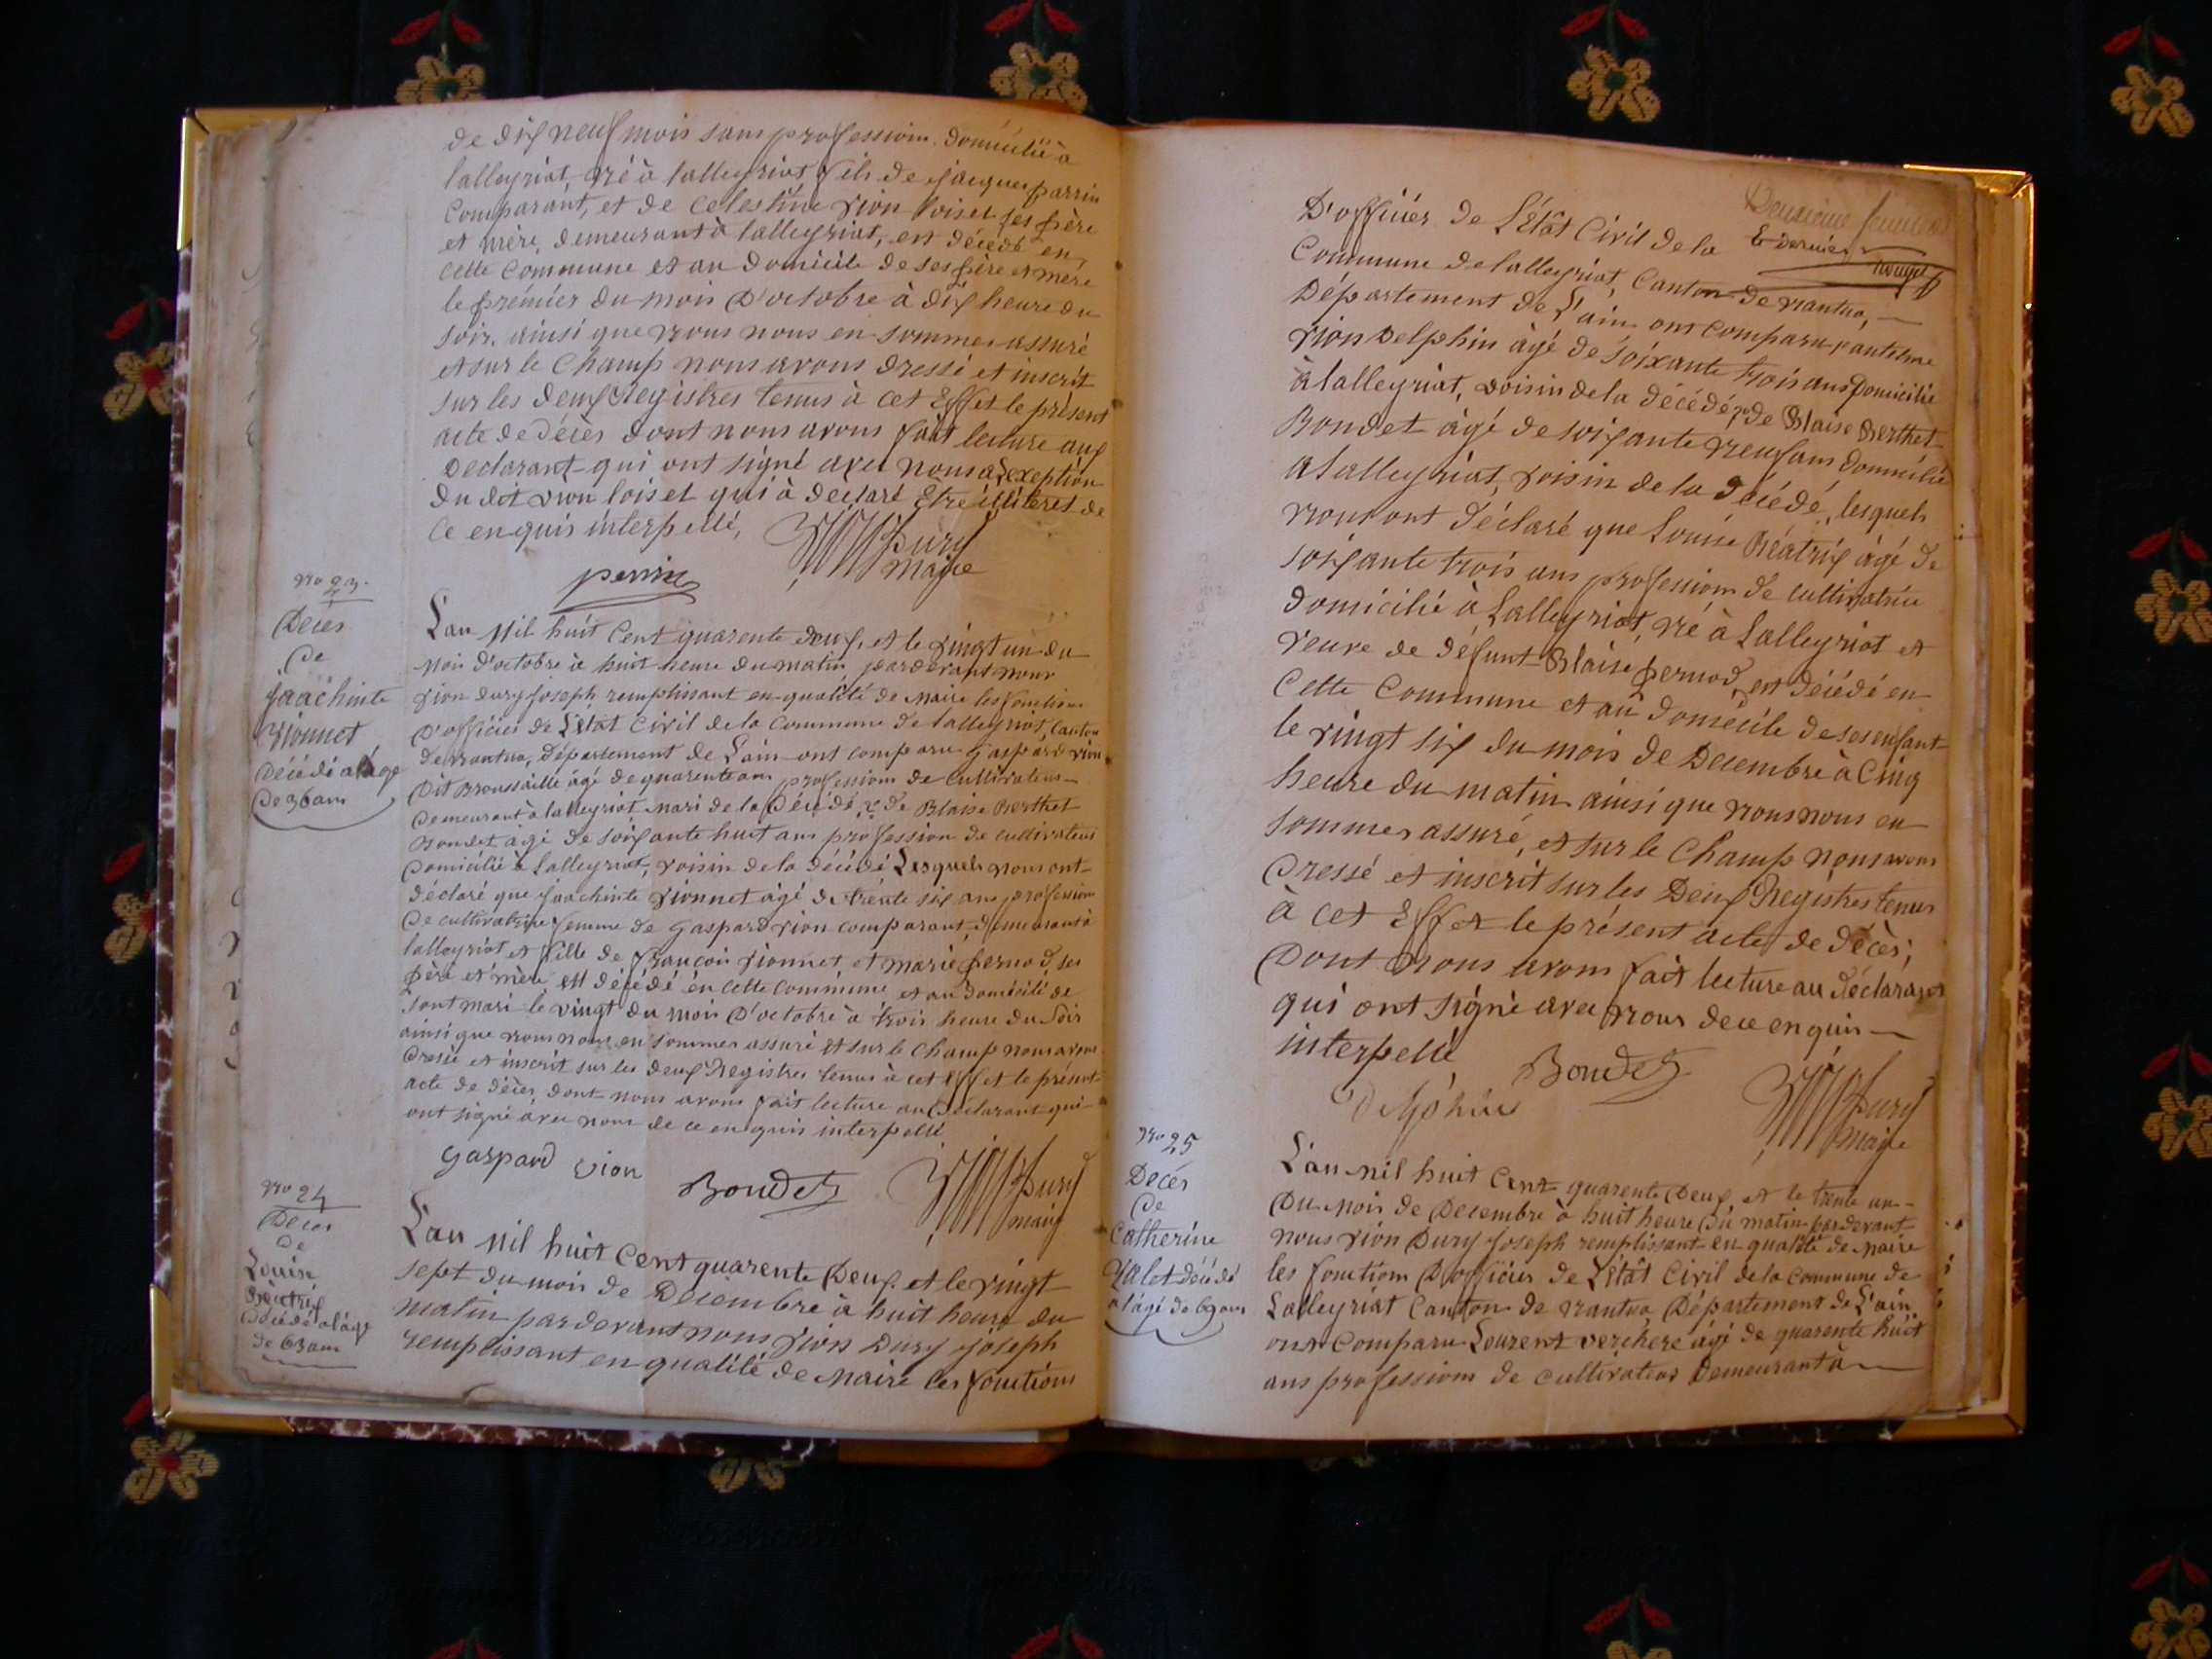 de dix neuf mois sans profession domicilié à
lalleyriat, né à lalleyriat fils de jacques perrin
Comparant, et de Celestine vion loiset ses père
et mère, demeurant à lalleyriat, est décédé en
Cette Commune et au domicile de ses père et mère
le prémier du mois D'octobre à dix heure du
soir, ainsi que nous nous en sommes assuré
et sur le Champ nous avons dressé et inscrit
sur les deux Registres tenus à cet Effet le présent
acte de décès dont nous avons fait lecture aux
Declarant qui ont signé avec nous a L'exeption
du dit vion loiset qui à déclaré Etre illiteret de
Ce enquis interpellé,
perrin
Dury
Maire
No 23.
Décès
De
jaachinte
vionnet
Décédé a lage
De 36 ans
L'an Mil huit Cent quarente deux, et le vingt un du
Mois d'octobre à huit heure du matin pardevant nous
vion dury joseph remplissant en qualité de Maire les fonctions
D'officier de L'état Civil de la Commune de lalleyriat, Canton
de nantua, département de L'ain ont comparu Gaspard vion
Dit Broussaille âgé de quarente ans profession de Cultivateur
Demeurant à lalleyriat mari de la Décédé, & de Blaise Berthet
Bondet âgé de soixante huit ans profession de cultivateur
Domicilié à Lalleyriat, voisin de la décédé Lesquels nous ont
déclaré que jaachinte vionnet âgé de trente six ans profession
De cultivatrice femme de Gaspard vion comparant, demeurant à
lalleyriat et fille de françois vionnet, et marie pernod, ses
père et mère, est décédé en Cette Commune et au domicile de
sont mari le vingt du mois D'octobre à trois heure du Soir
ainsi que nous nous en sommes assuré et sur le Champ nous avons
Dressé et inscrit sur les deux Registres tenus à cet effet le présent
acte de décès, dont nous avons fait lecture au Déclarant qui
ont signé avec nous de ce enquis interpellé
Gaspard vion
Bondet
Dury
maire
No 24
Décès
De
Louise
Béatrix
Décédé a l'âge
de 63 ans
L'an Mil huit Cent quarente Deux et le vingt
sept du mois de Décembre à huit heure du
matin pardevant nous vion Dury joseph
remplissant en qualité de Maire les fonctions
Deuxième feuillet
& dernier
D'officier de L'état Civil de la
Commune de lalleyriat, Canton de nantua,
Département de L'ain ont comparu, antelme
vion Delphin âgé de soixante trois ans Domicilié
à lalleyriat, voisin de la décédé, & de Blaise Berthet
Bondet âgé de soixante neuf ans, domicilié
a lalleyriat, voisin de la décédé, lesquels
nous ont déclaré que Louise Béatrix âgé de
soixante trois ans profession de cultivatrice
domicilié à Lalleyriat, né à Lalleyriat et
veuve de défunt Blaise pernod, est décédé en
Cette Commune et au domicile de ses enfant
le vingt six du mois de Decembre à Cinq
heure du matin ainsi que nous nous en
sommes assuré, et sur le Champ nous avons
Dressé et inscrit sur les Deux Registres tenus
à cet Effet le présent acte de décès;
Dont nous avons fait lecture au déclarant
qui ont signé avec nous de ce enquis
interpellé
Bondet
Delphin
Dury
maire
No 25
Décès
De
Catherine
Valet décédé
a l'âgé de 69 ans
L'an mil huit Cent quarente Deux et le trente un
Du Mois de Decembre à huit heure du matin pardevant
nous vion Dury joseph remplissant en qualité de Maire
les fonctions D'officier de L'Etât Civil de la Commune de
Lalleyriat Canton de nantua, Département de L'ain,
ont Comparu Laurent verchere âgé de quarente huit
ans profession de cultivateur Demeurant à